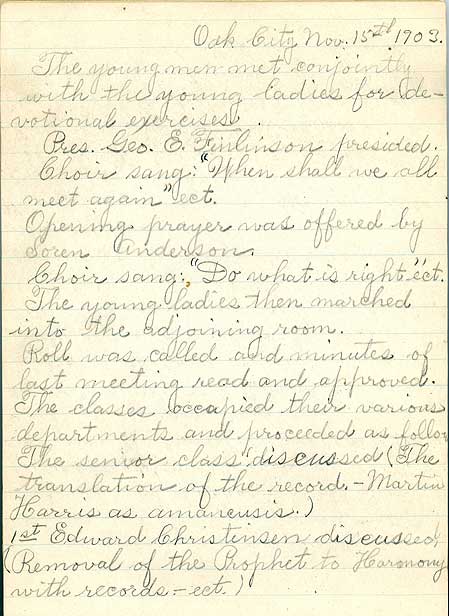 Oak City Nov. 15th 1903.
The young men met conjointly
with the young ladies for de-
votional exercises.
Pres. Geo. E. Finlinson presided.
Choir sang: "When shall we all
meet again" ect.
Opening prayer was offered by
Soren Anderson.
Choir sang: "Do what is right" ect.
The young ladies then marched
into the adjoining room.
Roll was called and minutes of
last meeting read and approved.
The classes occupied their various
departments and proceeded as follow
The senior class discussed (The
translation of the record. - Martin
Harris as amanensis.)
1st Edward Christensen discussed
(Removal of the Prophet to Harmony
with records - ect.)